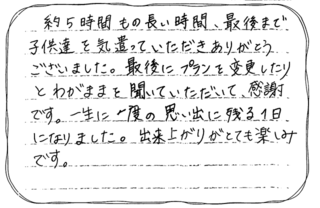 約5時間もの長い時間、最後まで
子供達を気遣っていただきありがとう
ございました。最後にプランを変更したり
とわがままを聞いていただいて、感謝
です。一生に一度の思い出に残る1日
になりました。出来上がりがとても楽しみ
です。